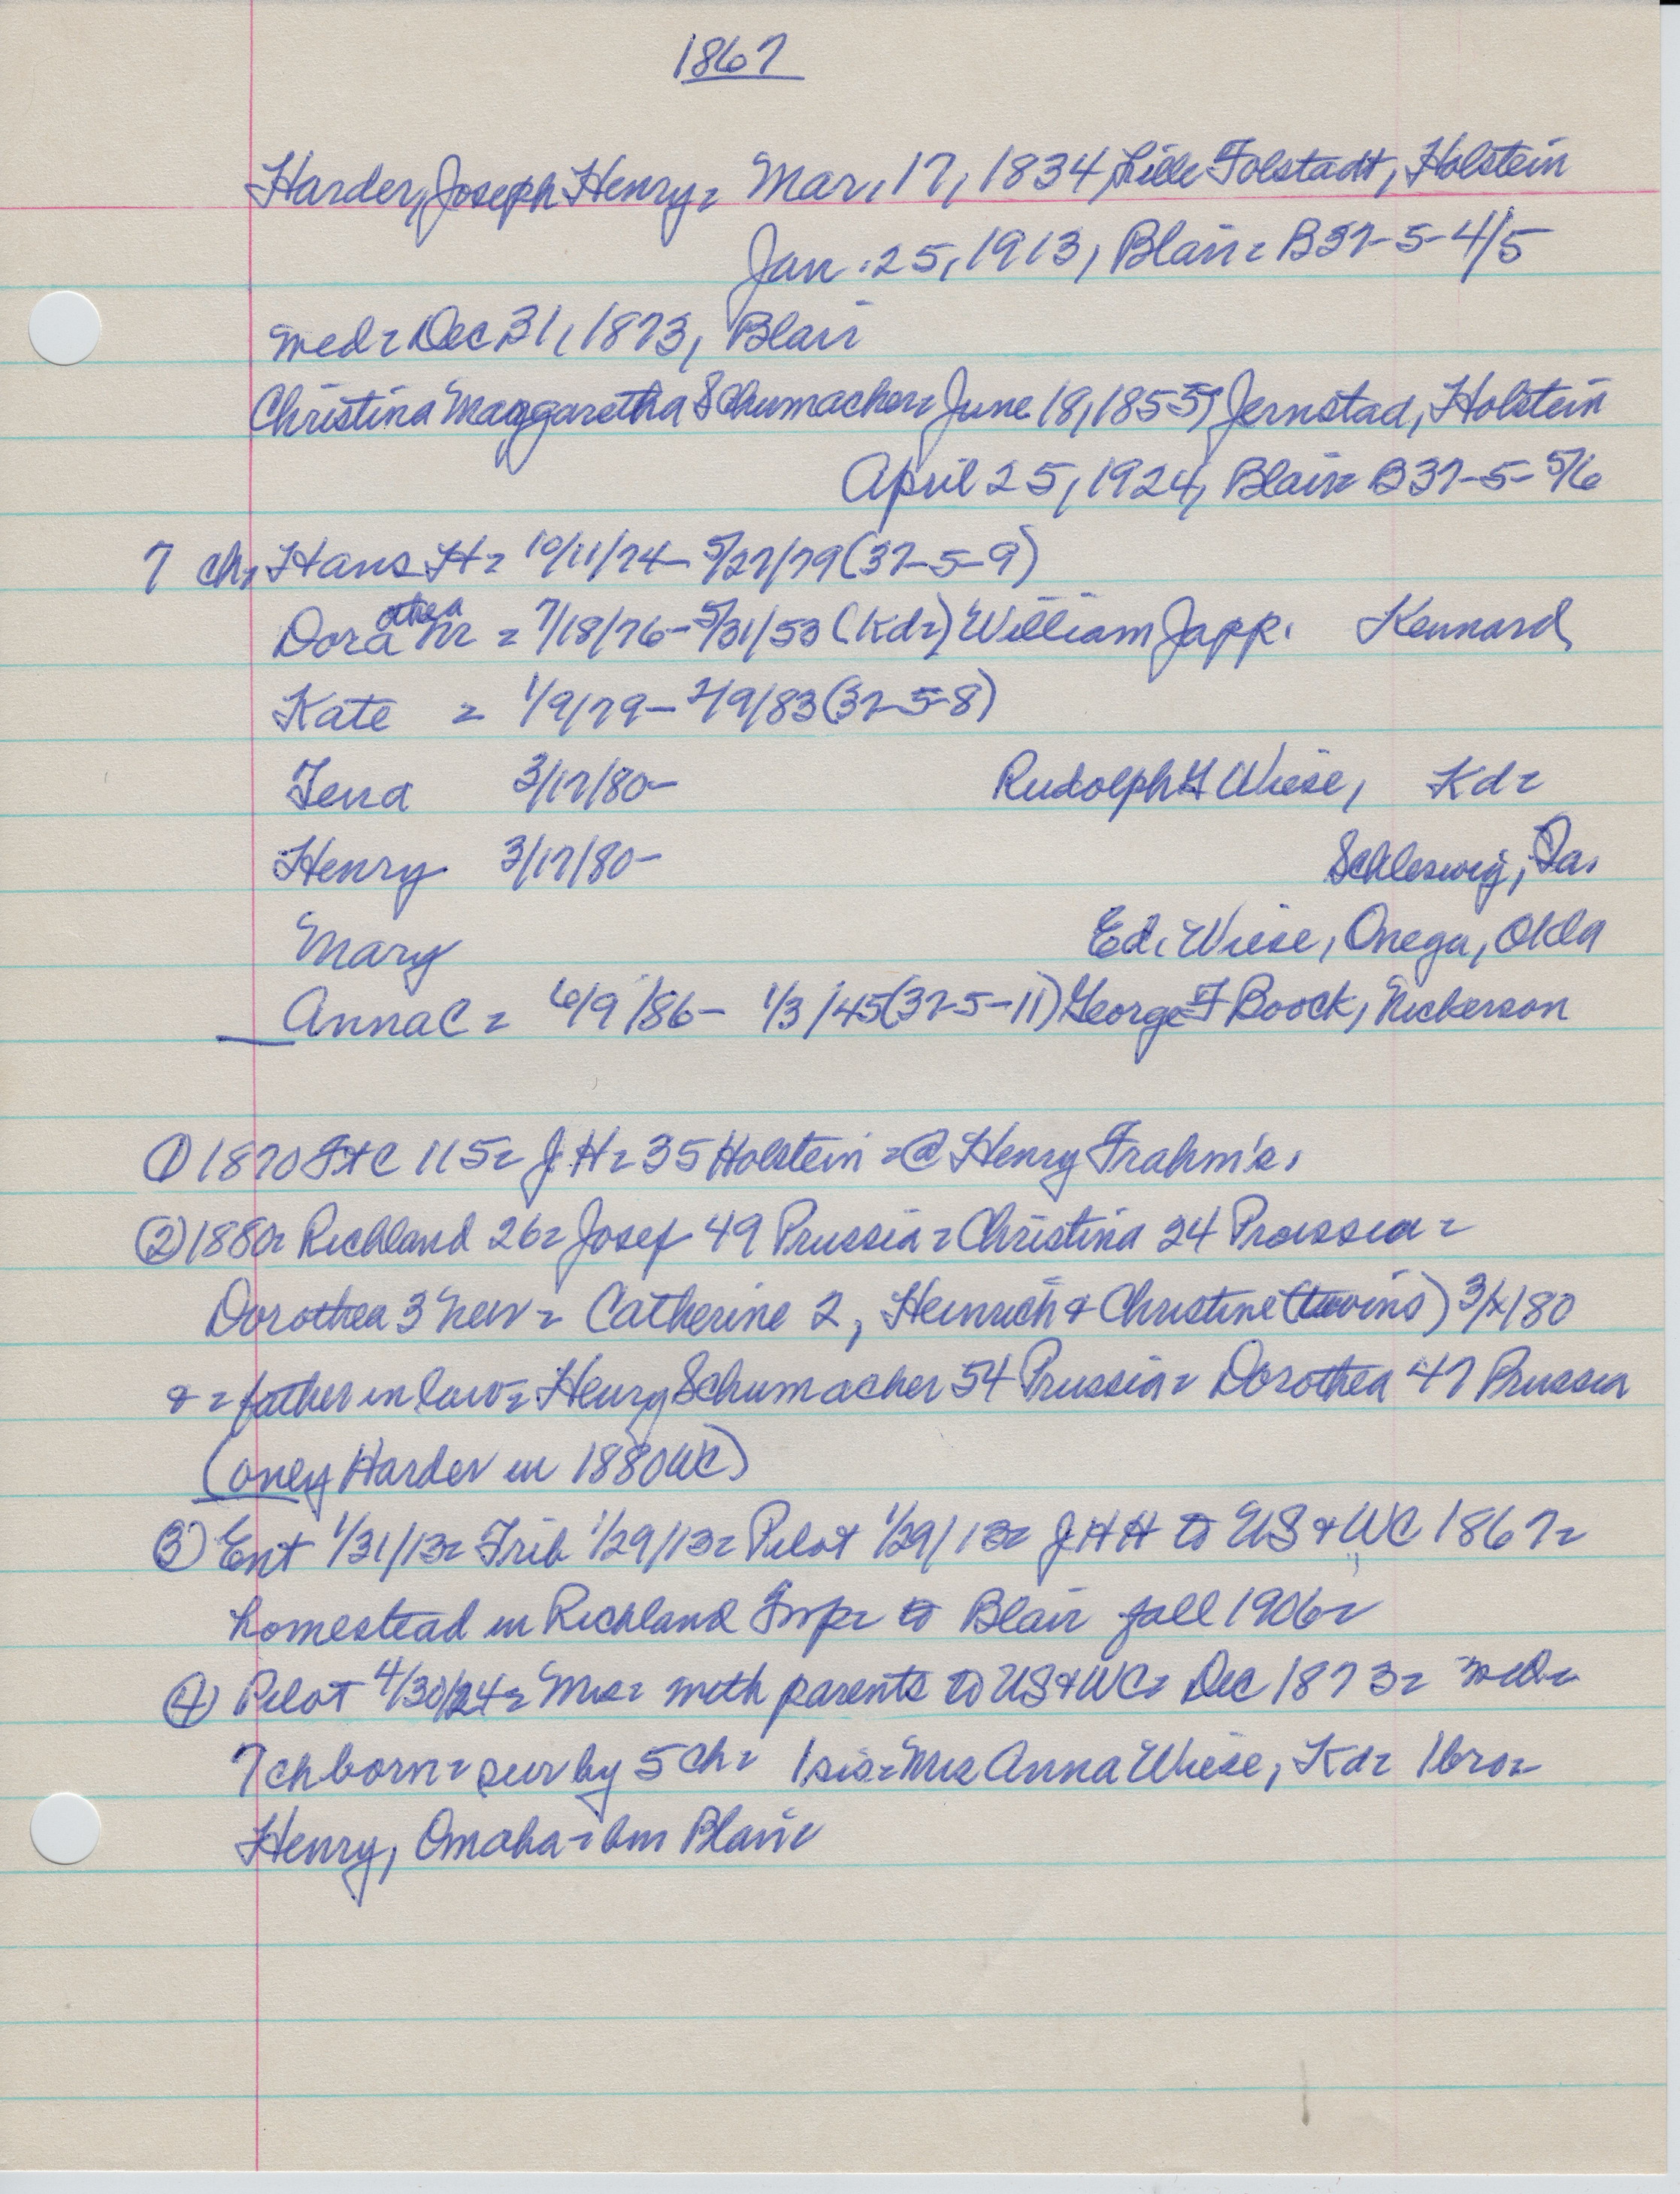 1867
Harder, Joseph Henry = Mar. 17, 1834, Lille Tolstadt, Holstein
Jan. 25, 1913, Blair = B37-5-4/5
med = Dec 31, 1873, Blair
Christina Maggaretha Schumacher = June 18, 1855, Jernstad, Holstein
April 25, 1924, Blair = B37-5-5/6
7 ch, Hans H = 10/11/74 - 5/27/79 (37-5-9)
Dorathea M = 7/18/76 - 5/31/53 (Kd=) William Japp. Kennard
Kate = 1/9/79 - 2/9/83 (37-5-8)
Tena 3/17/80 - Rudolph H Wiese, Kd =
Henry 3/17/80 - Schleswig, Ia.
Mary Ed. Wiese, Onega, Okla
Anna C = 6/9/86 - 1/3/45 (37-5-11) George F Boock, Nickerson
① 1870 FtC 115 = J. H = 35 Holstein = @ Henry Frahm's.
② 1880 = Richland 26 = Josef 49 Prussia = Christina 24 Prussia =
Dorothea 3 Neb = Catherine 2, Heinrich & Christine (twins) 3/x/80
& = father in law = Henry Schumacher 54 Prussia = Dorothea 47 Prussia
(only Harder in 1880 WC)
③ Ent 1/31/13 = Trib 1/29/13 = Pilot 1/29/13 = J H H to US & WC 1867 =
homestead in Richland Twp = to Blair fall 1906 =
④ Pilot 4/30/24 = Mrs = with parents to US & WC = Dec 1873 = md =
7 ch born = sur by 5 ch = 1 sis = Mrs Anna Wiese, Kd = 1 bro =
Henry, Omaha = bm Blair